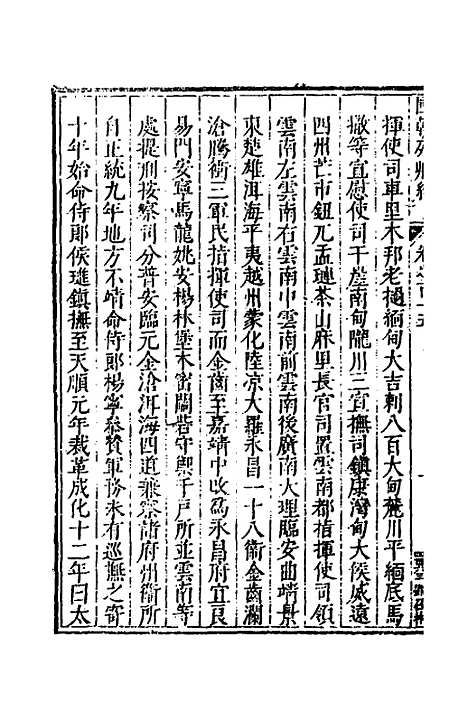 揮使司車里木邦老撾緬甸大古剌八百大甸麓川平緬底馬
撒等宣慰使司干崖南甸隴川三宣撫司鎮康灣甸大侯威遠
四州芒市鈕兀孟璉茶山麻里長官司置雲南都指揮使司領
雲南左雲南右雲南中雲南前雲南後廣南大理臨安曲靖景
東楚雄洱海平夷越州蒙化陸凉大羅永昌一十八衛金齒瀾
滄騰衝三軍民指揮使司而金齒至嘉靖中改爲永昌府宜良
易門安寧馬龍姚安楊林堡木密關若守禦千戶所並雲南等
處提刑按察司分普安臨元金滄洱海四道兼察諸府州衛所
自正統九年地方不靖命侍郎楊寧叅贊軍務未有巡撫之寄
十年始命侍郎侯璡鎮撫至天順元年裁革成化十二年曰太